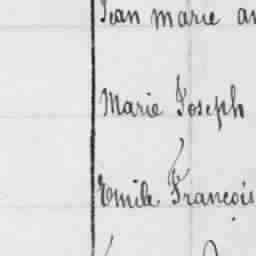 Jean Marie
Marie Joseph
Emile François